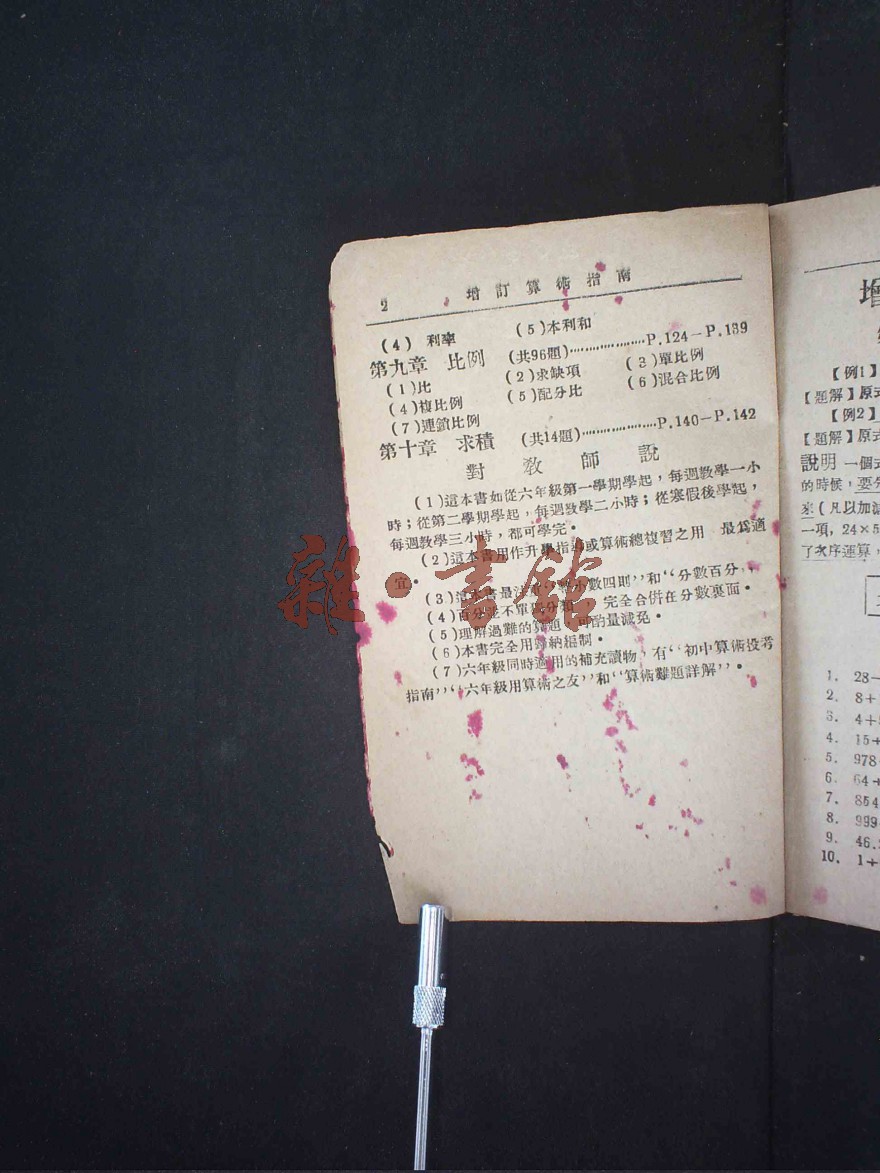 2 增訂算術指南
(4) 利率 (5)本利和
第九章 比例 (共96題)····················P.124－P.139
(1)比 (2)求缺項 (3)單比例
(4)複比例 (5)配分比 (6)混合比例
(7)連鎖比例
第十章 求積 (共14題)····················P.140－P.142
對教師說
(1)這本書如從六年級第一學期學起，每週教學一小
時；從第二學期學起，每週教學二小時；從寒假後學起，
每週教學三小時，都可學完。
(2)這本書用作升學指導或算術總複習之用 最爲適
宜。
(3)這本書最注重 小數四則''和‘‘分數百分，
(4)百分並不單獨分類 完全合併在分數裏面。
(5)理解過難的算題 可酌量減免。
(6)本書完全用歸納編制。
(7)六年級同時適用的補充讀物，有‘‘初中算術投考
指南''‘‘六年級用算術之友''和‘‘算術難題詳解''。
雜·書館
增
【例1】
【題解】原式
【例2】
【題解】原式
說明 一個式
的時候，要先
來(凡以加減
一項，24×5
了次序運算，
1. 28－
2. 8＋
3. 4＋
4. 15＋
5. 978
6. 64＋
7. 854
8. 999
9. 46.
10. 1＋